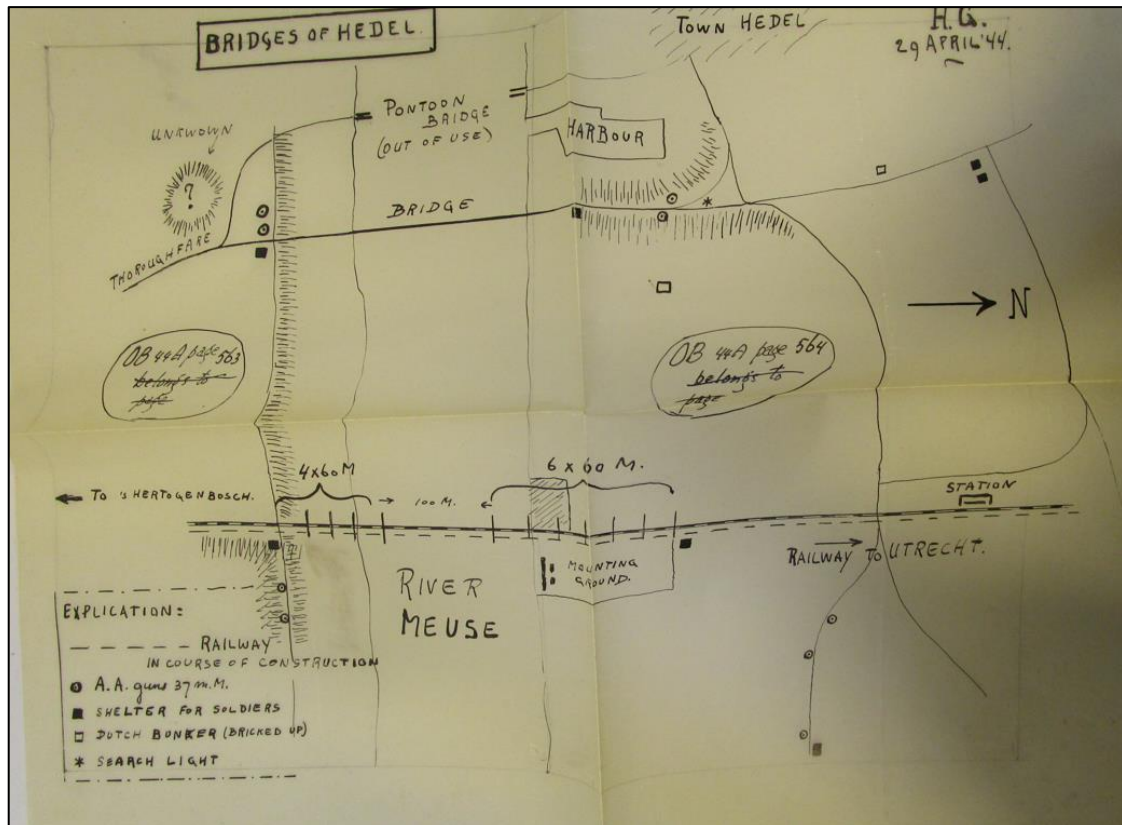 BRIDGES OF HEDEL.
TOWN HEDEL
H.G.
29 APRIL '44.
UNKWOWN
?
PONTOON
BRIDGE
(OUT OF USE)
HARBOUR
BRIDGE
THOROUGHFARE
N
OB 44A page 563
belongs to
page
OB 44A page 564
belongs to
page
4x60M
6 x 60 M.
TO 'S HERTOGENBOSCH.
100 M.
STATION
RAILWAY TO UTRECHT.
MOUNTING
GROUND.
RIVER
MEUSE
EXPLICATION:
RAILWAY
IN COURSE OF CONSTRUCTION
A.A. guns 37 m.M.
SHELTER FOR SOLDIERS
DUTCH BUNKER (BRICKED UP)
SEARCH LIGHT